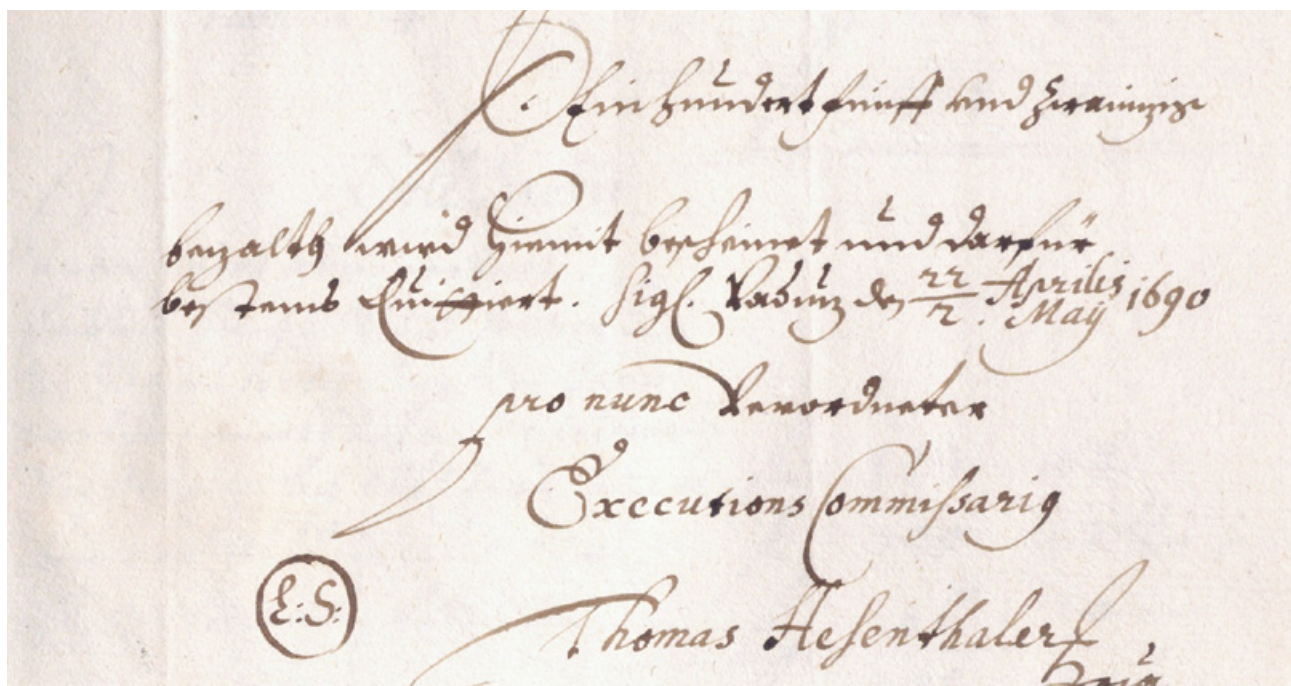 Ein hundert fünff und Zwainzig
bezalth wird hiemit bescheinet und darfür
bestens Quittiert. Sigl. Vaduz den 22/2 Aprilis/May 1690
pro nunc Verordneter
Executions Commissarig
L: S:
Thomas Hesenthaler